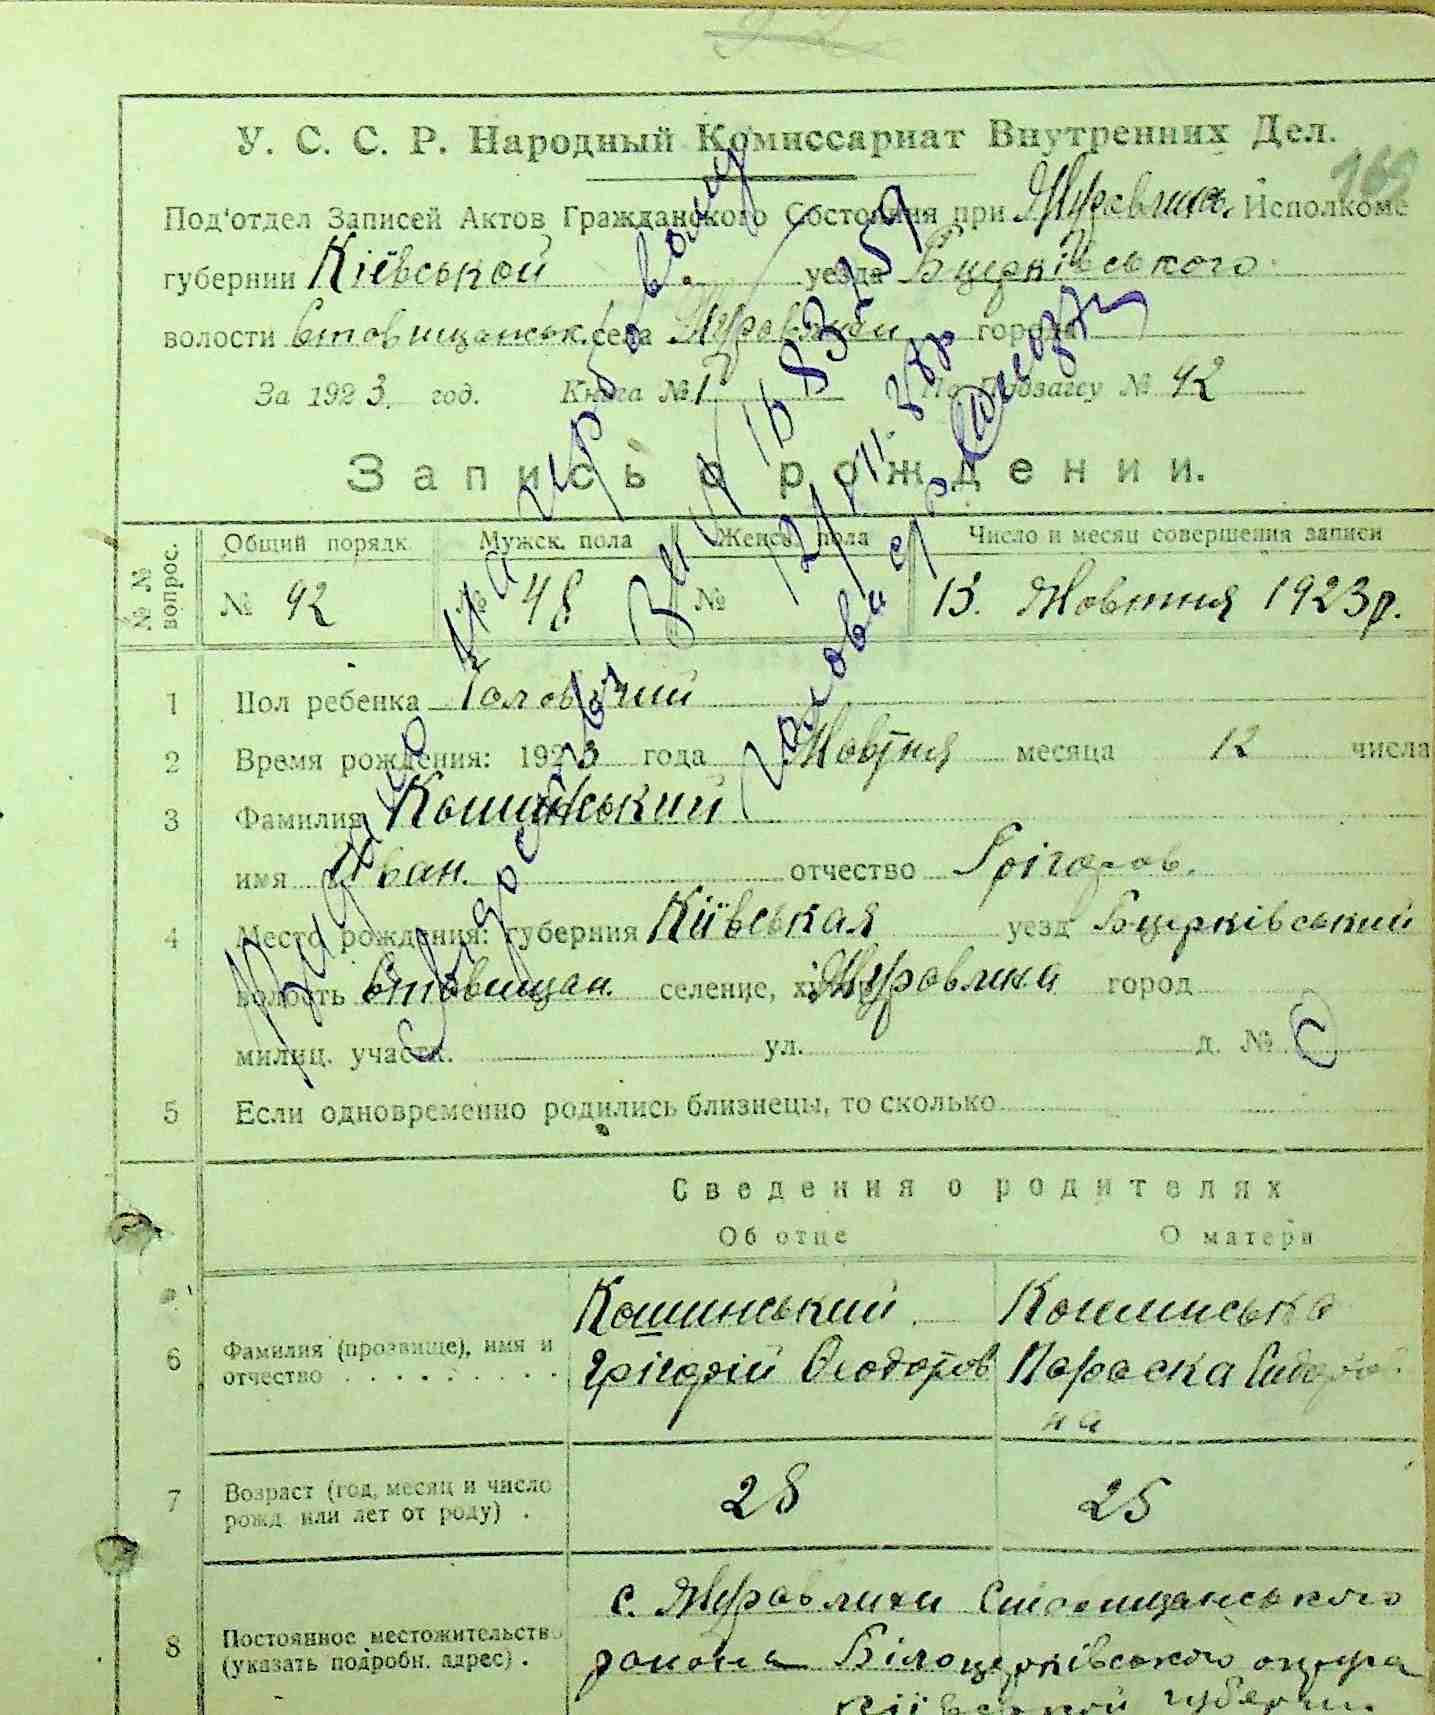 169
У. С. С. Р. Народный Комиссариат Внутренних Дел.
Под'отдел Записей Актов Гражданского Состояния при Журавлих. Исполкоме
губернии Київськой уезда Бцерківського
волости Ставищанськ. села города
За 1923. год. Книга № 1 По Подзагсу № 92
Запись о рождении.
№ № вопрос. Общий порядк. Мужск. пола Женск. пола Число и месяц совершения записи
№ 92 № 48 № 13. Жовтня 1923 р.
1 Пол ребенка Чоловичий
2 Время рождения: 1923 года Жовтня месяца 12 числа
3 Фамилия Кошинський
имя Іван. отчество Грігоров.
4 Место рождения: губерния Київськая уезд Бцерківський
волость Ставищан. селение, хутор Журавлиха город
милиц. участк. ул. д. №
5 Если одновременно родились близнецы, то сколько
Сведения о родителях
Об отце О матери
6 Фамилия (прозвище), имя и отчество
Кошинський Кошинська
Грігорій Феодоров Параска Сидоровна
7 Возраст (год, месяц и число рожд. или лет от роду) .
28 25
8 Постоянное местожительство (указать подробн. адрес) .
с. Журавлихи Ставищанського
района Білоцерківського округа
Київської губерни.
Видано на
12/III. 38 р
Голова с/р